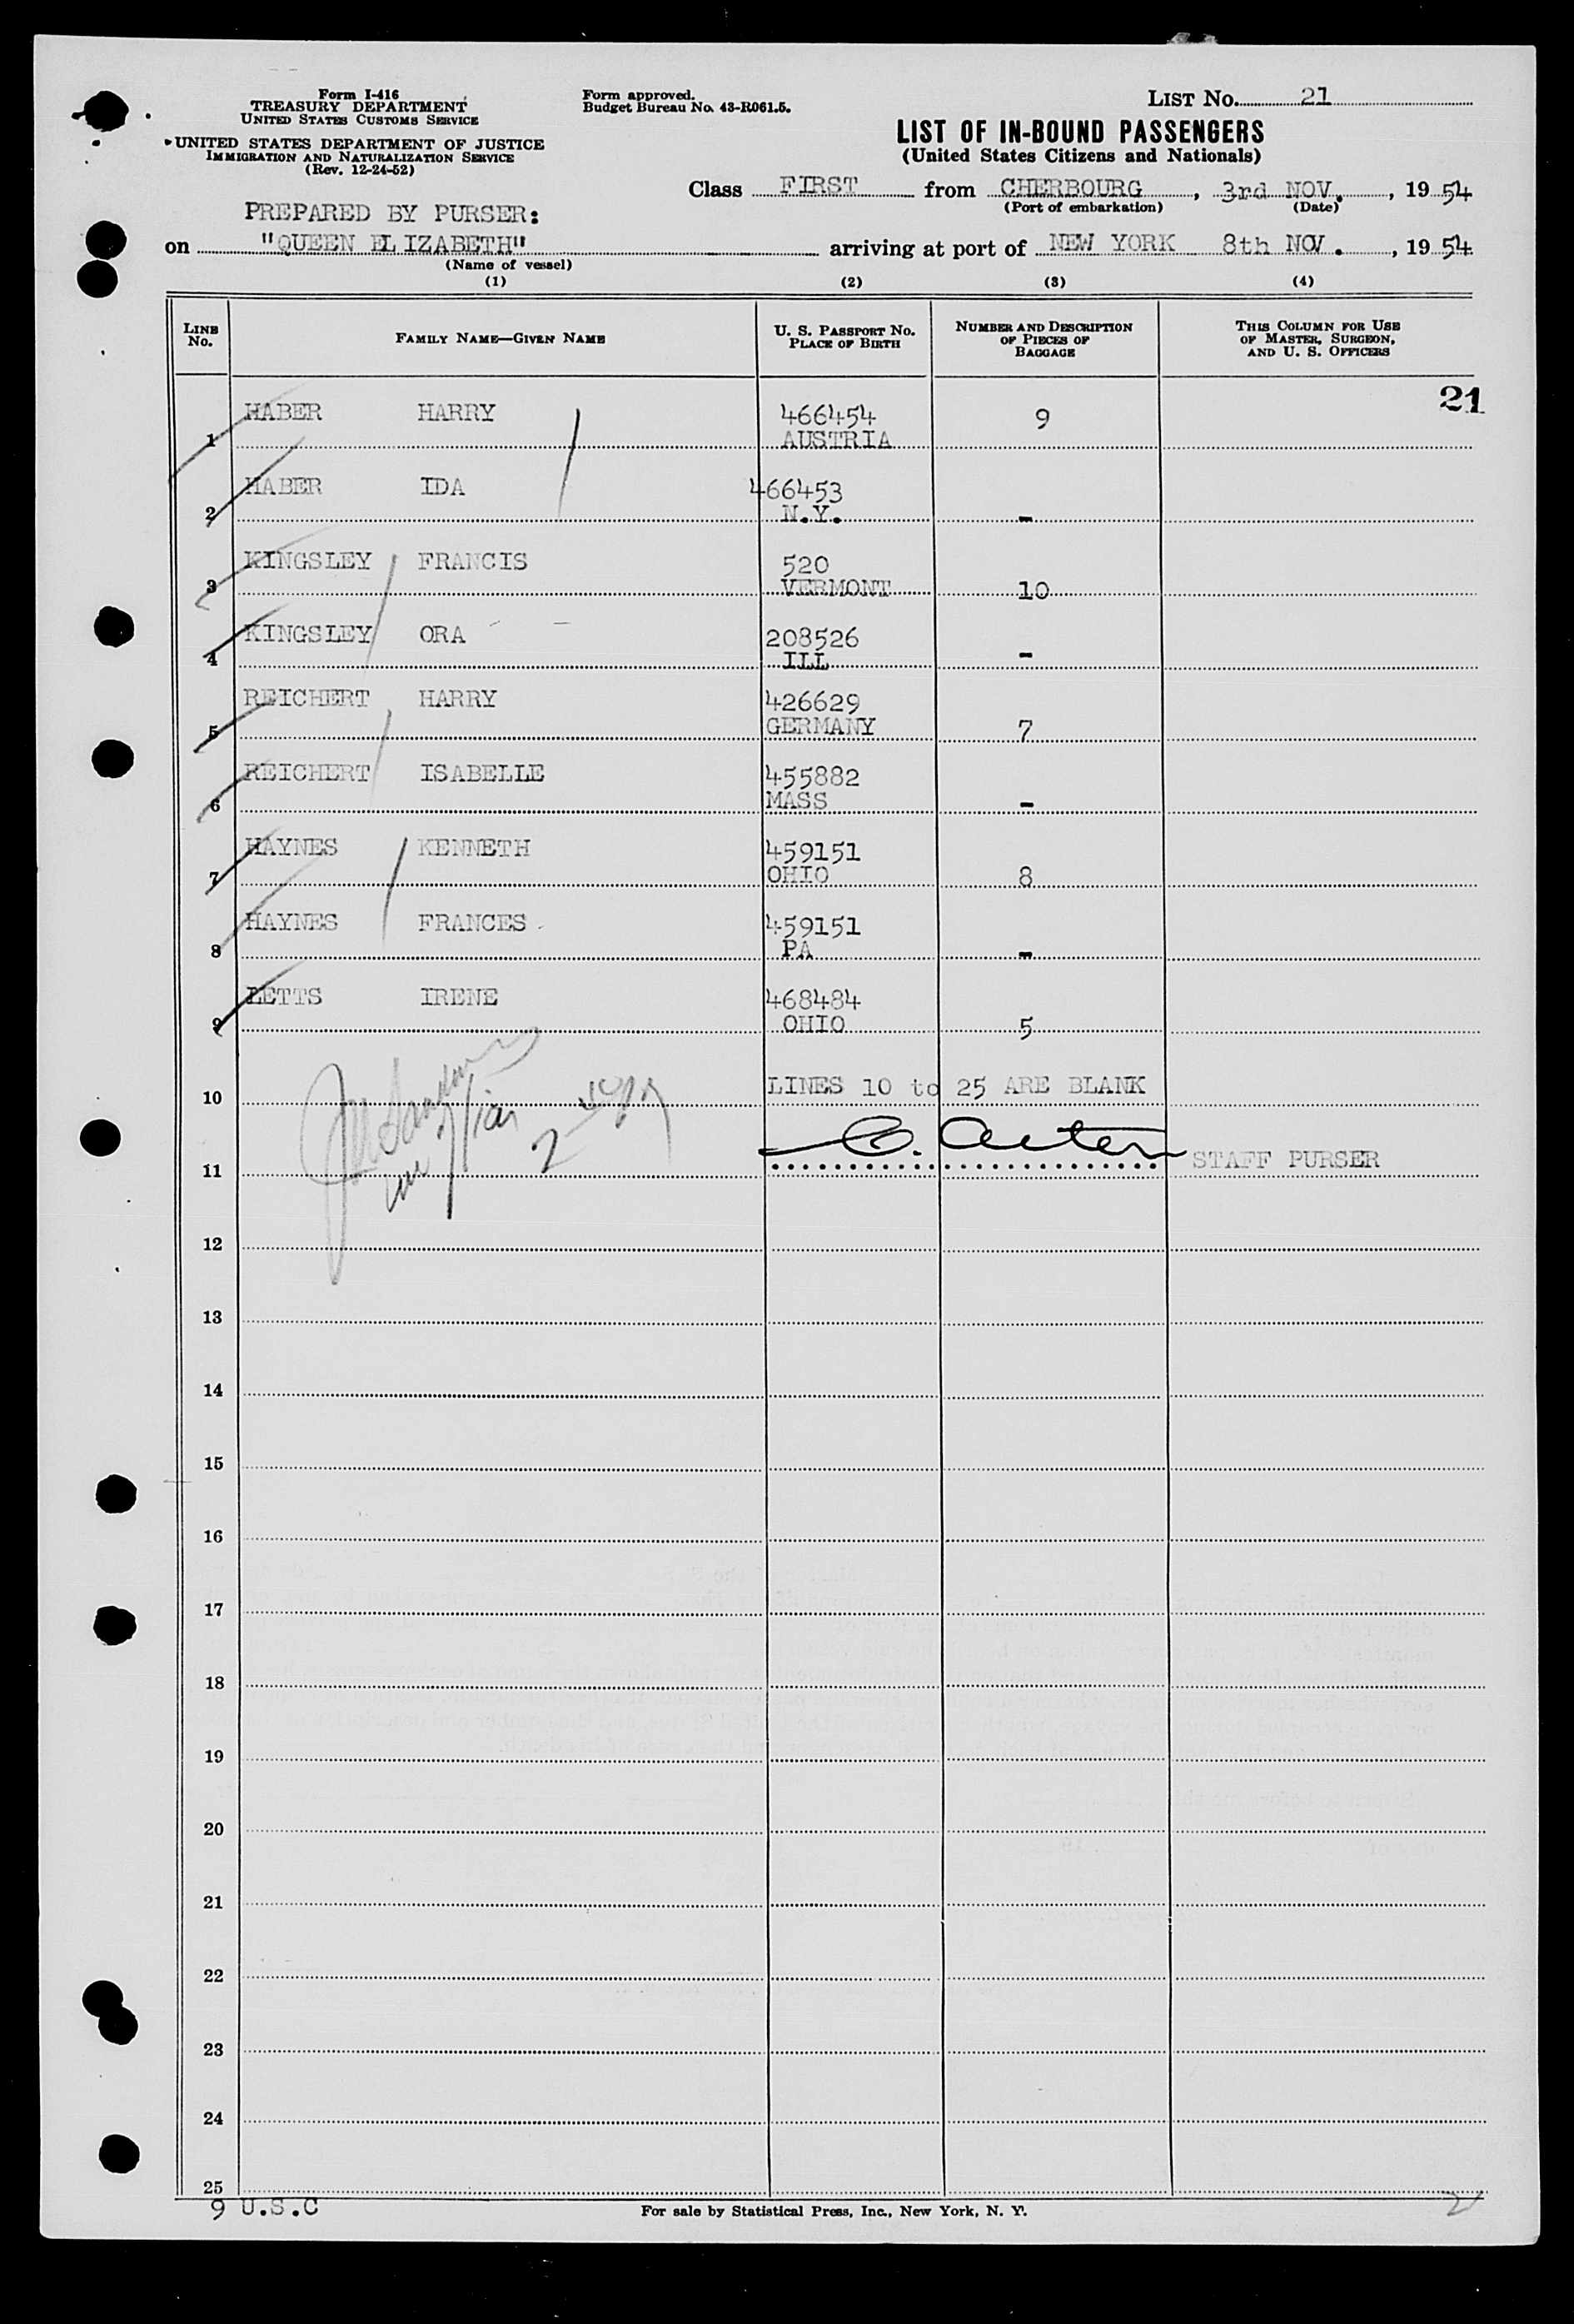 Form I-416
TREASURY DEPARTMENT
UNITED STATES CUSTOMS SERVICE
UNITED STATES DEPARTMENT OF JUSTICE
IMMIGRATION AND NATURALIZATION SERVICE
(Rev. 12-24-52)
Form approved.
Budget Bureau No. 43-R061.5.
LIST No. 21
LIST OF IN-BOUND PASSENGERS
(United States Citizens and Nationals)
Class FIRST from CHERBOURG, 3rd NOV., 1954
(Port of embarkation) (Date)
PREPARED BY PURSER:
on "QUEEN ELIZABETH" arriving at port of NEW YORK 8th NOV., 1954
(Name of vessel)
(1) (2) (3) (4)
LINE No. FAMILY NAME—GIVEN NAME U. S. PASSPORT No. PLACE OF BIRTH NUMBER AND DESCRIPTION OF PIECES OF BAGGAGE THIS COLUMN FOR USE OF MASTER, SURGEON, AND U. S. OFFICERS
21
HABER HARRY 466454 9
1 AUSTRIA
HABER IDA 466453
2 N.Y. -
KINGSLEY FRANCIS 520
3 VERMONT 10
KINGSLEY ORA 208526
4 ILL -
REICHERT HARRY 426629
5 GERMANY 7
REICHERT ISABELLE 455882
6 MASS -
HAYNES KENNETH 459151
7 OHIO 8
HAYNES FRANCES 459151
8 PA -
LETTS IRENE 468484
9 OHIO 5
10 LINES 10 to 25 ARE BLANK
11 STAFF PURSER
12
13
14
15
16
17
18
19
20
21
22
23
24
25
9 U.S.C
For sale by Statistical Press, Inc., New York, N. Y.
21